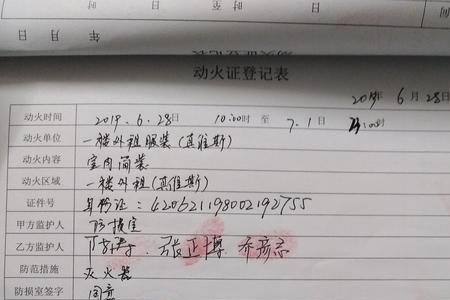 日 时 日 时
年 月 日
动火证登记表
2019年 6 月 28日
动火时间 2019.6.28日 10:00时 至 7.1日 24:00时
动火单位 一楼外租服装(真维斯)
动火内容 室内简装
动火区域 一楼外租(真维斯)
证件号 身份证:420621198002192755
甲方监护人 防损室
乙方监护人 张正博 乔彦志
防范措施 灭火器
防损室签字 同意